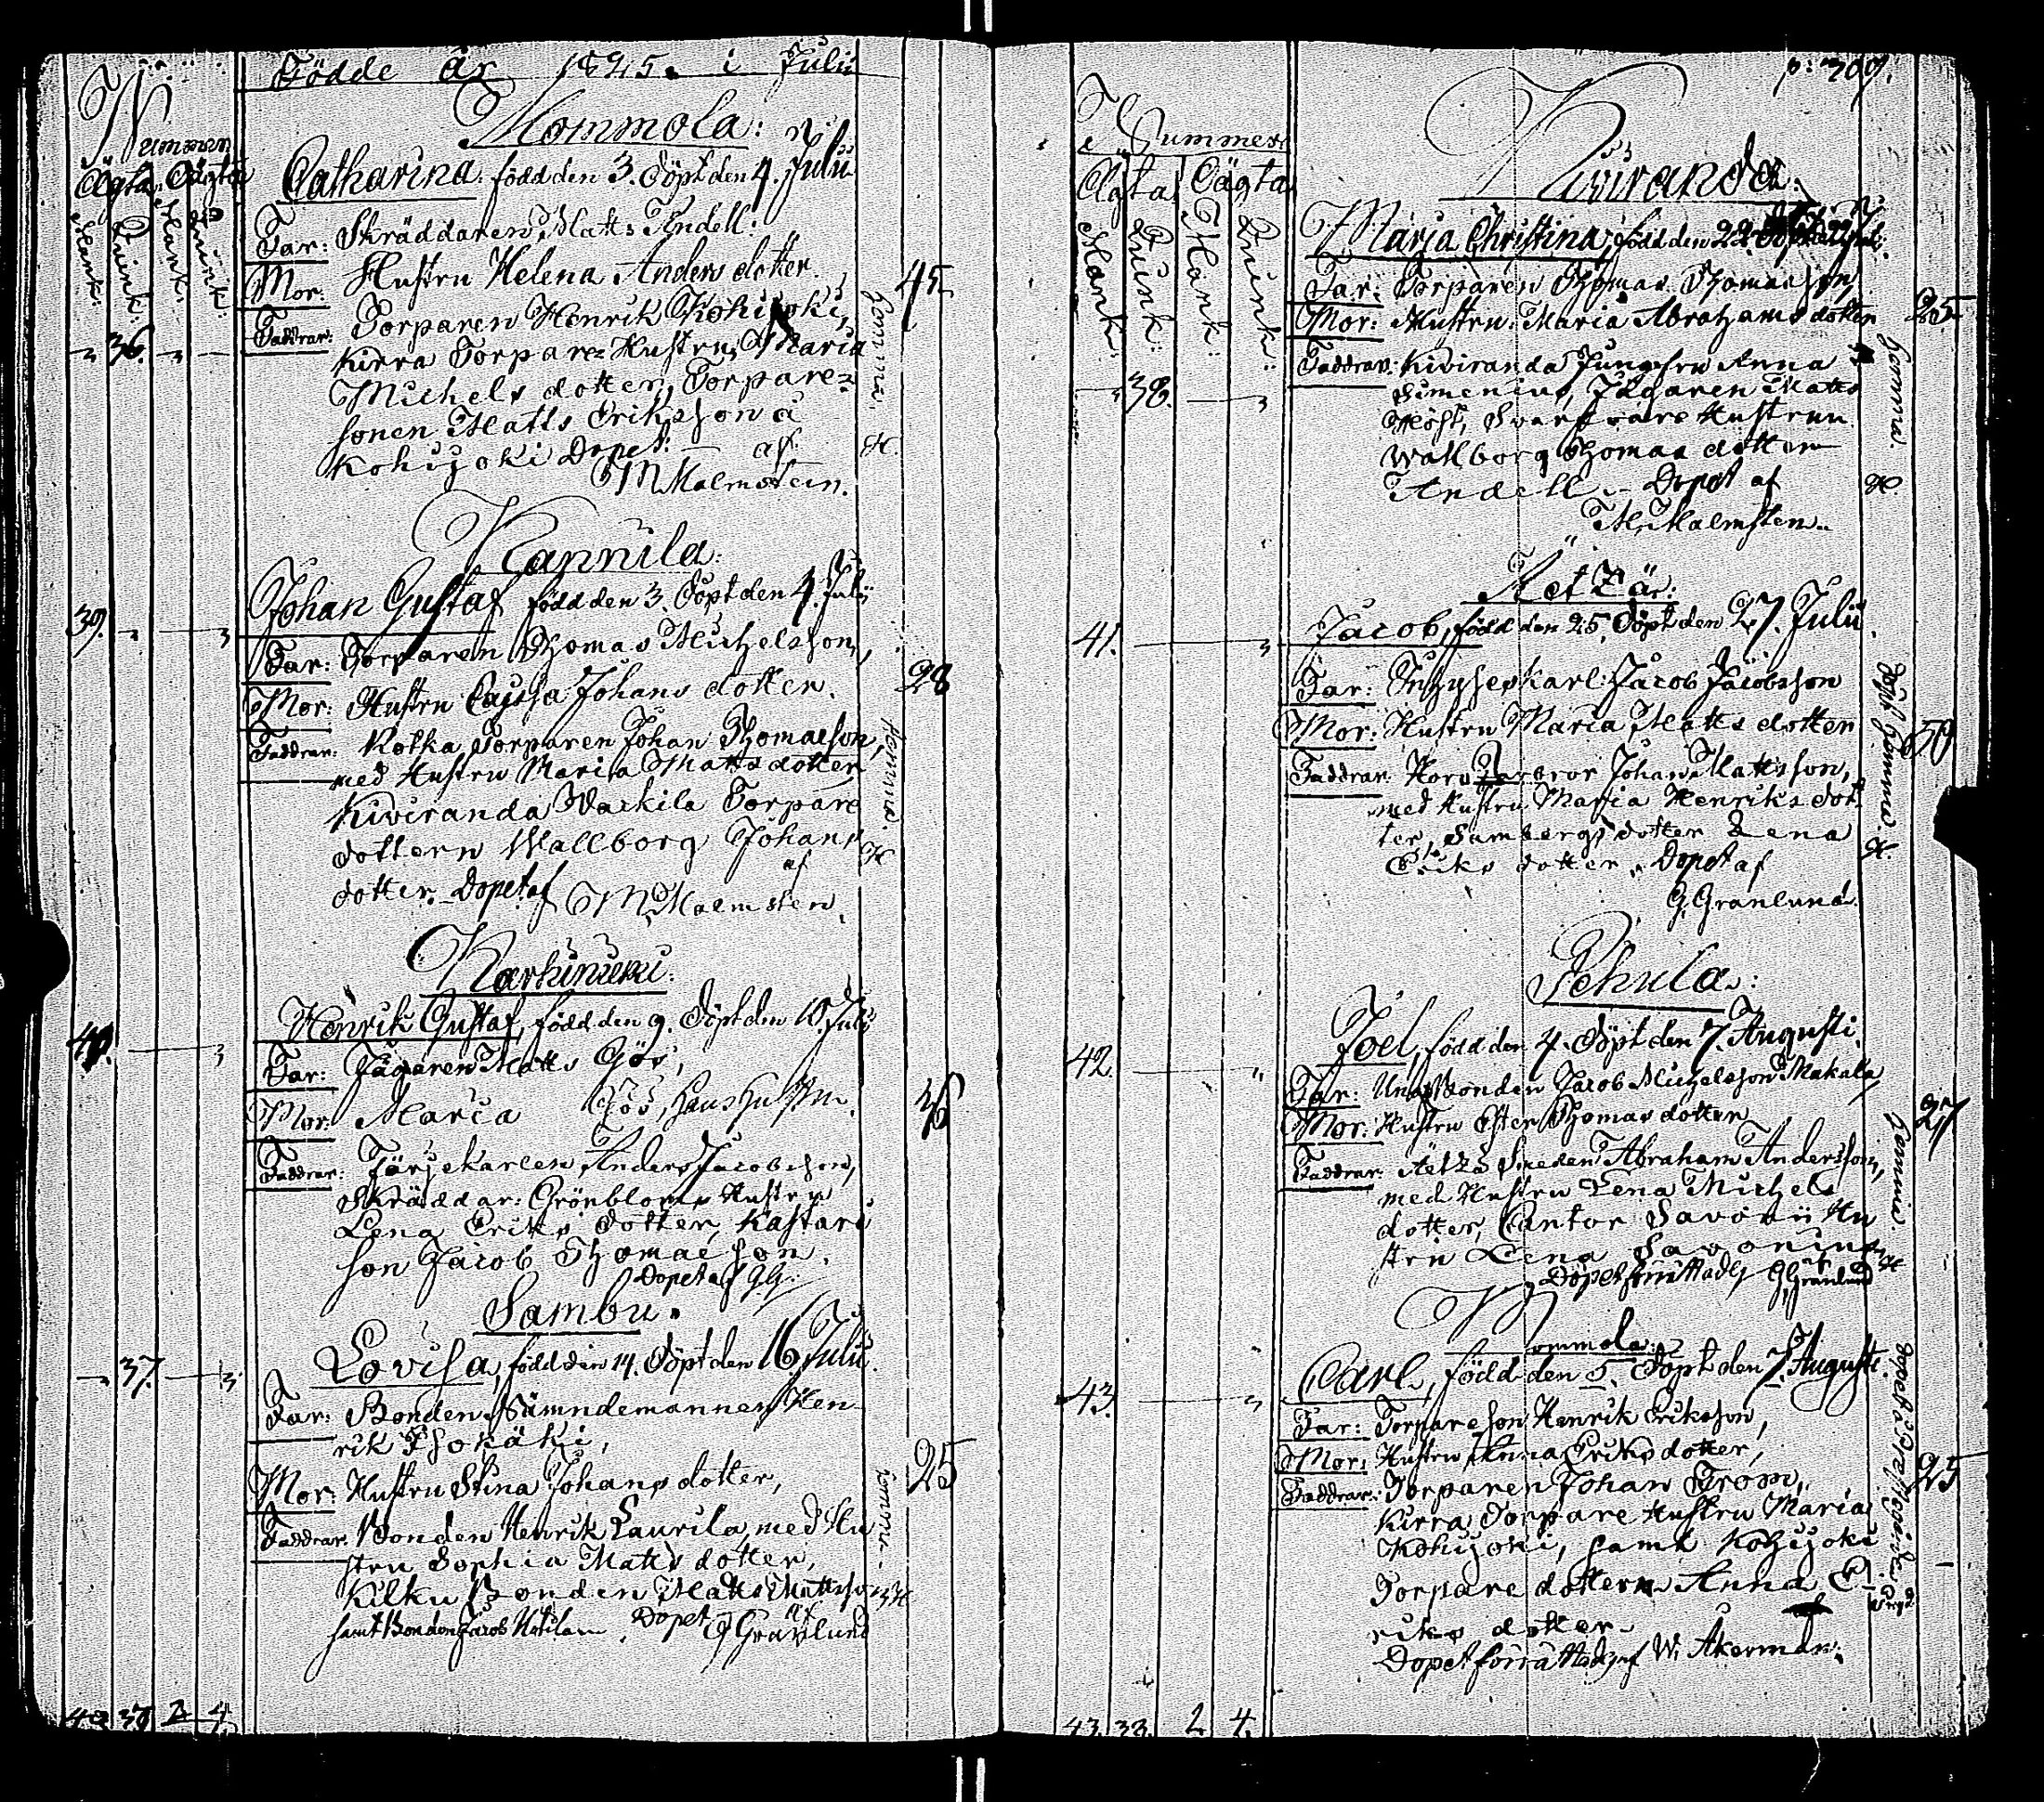 Födde år 1825. i Julii
Nummer
Ägta. Oägta
Mank: Quink: Mank: Quink:
Mommola:
Catharina. född den 3. Döpt den 4. Julii
Far: Skräddaren Matts Andell.
Mor: Hustru Helena Anders dotter. 45
36. Faddrar: Torparen Henrik Kohijoki,
Kirra Torpare Hustru, Maria
Michels dotter, Torpare-
sonen Matts Eriksson å
Kohijoki Dopet: af
M Malmstein.
Hemma. H.
Kannila:
39. Johan Gustaf född den 3. Döpt den 4. Julii
Far: Torparen Thomas Michelsson,
Mor: Hustru Cajsa Johans dotter. 28
Faddrar: Kotka Torparen Johan Thomasson,
med Hustru Maria Matts dotter
Kiviranda Torpare
dottern Wallborg Johans
dotter. Dopet af af
M. Malmsten.
Hemma. H
40. Henrik Gustaf, född den 9. Döpt den 10. Julii
Far: Jägaren Matts Gös,
Mor: Maria Gös, hans hustru. 36
Faddrar: Färjekarlen Anders Jacobsson,
Skräddar: Grönbloms Hustru
Lena Eriks dotter, Kastari
son Jacob Thomasson.
Dopet af GG.
Sambu.
37. Lovisa, född den 14. Döpt den 16. Julii.
Far: Bonden Nämndemannen Hen-
rik Isokäki,
Mor: Hustru Stina Johans dotter, 25
Faddrar: Bonden Henrik Laurila, med Hu
stru Sophia Matts dotter,
Kilku Bonden Matts Mattsson
samt Bonden Jacob . Dopet af
G Granlund
Hemma. H
40 37 2 4
p: 309.
Nummer
Ägta Oägta
Mank: Quink: Mank: Quink:
Kiviranda:
Marja Christina, född den 22
Far: Torparen Thomas Thomasson,
Mor: Hustru: Maria Abrahams dotter 25
38. Faddrar: Kiviranda Jungfru Anna
Simenius, Jägaren Matts
Höst, Svarfvare Hustrun
Wallborg Thomas dotter
Andell. - Dopet af
M. Malmsten.
Hemma. H.
Äetzä:
41. Jacob, född den 25. Döpt den 27. Julii
Far: Jacob Jacobsson
Mor: Hustru Maria Matts dotter 50
Faddrar: Johan Mattsson,
med Hustru Maria Henriks dot
ter, dotter Lena
Eriks dotter. Dopet af
G. Granlund.
Döpt hemma. H.
Pehula:
42. Joel, född den 4. Döpt den 7. Augusti.
Far: Bonden Jacob Michelsson Makala,
Mor: Hustru Ester Thomas dotter 27
Faddrar: Äetzä Smeden Abraham Andersson,
med Hustru Lena Michels
dotter, Cantor Savonii Hu
stru Lena Savonius
Dopet förrättades af G. Granlund
Hemma. H
Mommola:
43. Carl, född den 5. Döpt den 7. Augusti.
Far: Torpareson Henrik Eriksson,
Mor: Hustru Anna Eriks dotter, 25
Faddrar: Torparen Johan From,
Kirra Torpare Hustru Maria
Kohijoki, samt Kohijoki
Torpare dottern Anna E-
riks dotter.
Dopet förrättades af W. Åkerman.
43. 38. 2 4.